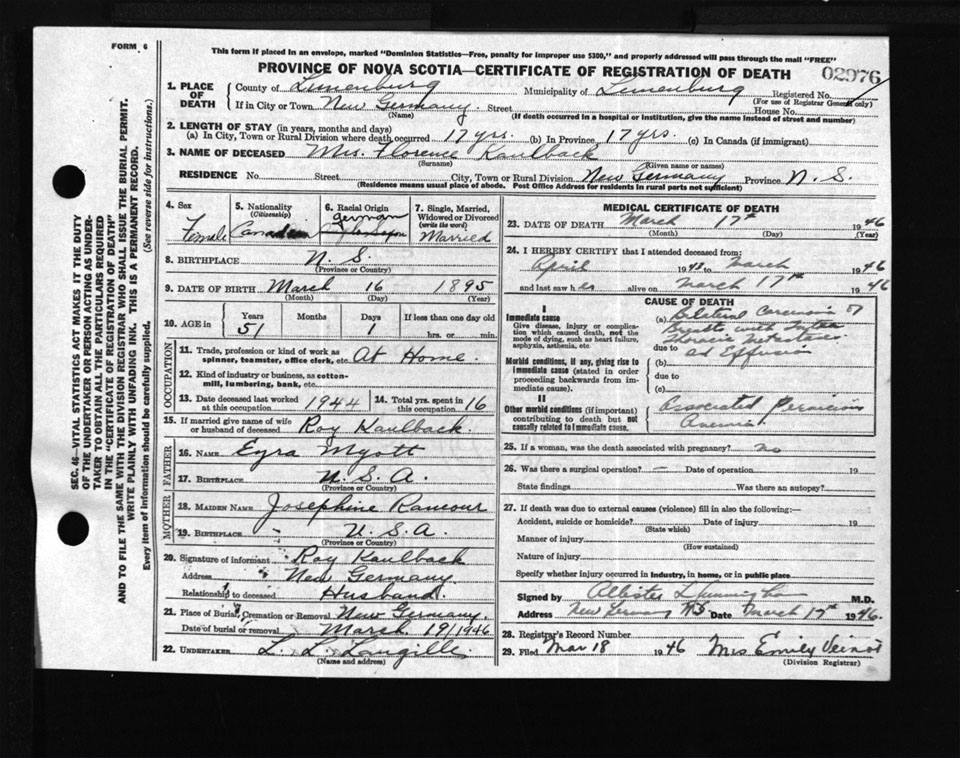 FORM 6
This form if placed in an envelope, marked "Dominion Statistics—Free, penalty for improper use $300," and properly addressed will pass through the mail "FREE"
PROVINCE OF NOVA SCOTIA—CERTIFICATE OF REGISTRATION OF DEATH
02976
1. PLACE OF DEATH
County of Lunenburg Municipality of Lunenburg Registered No.
(For use of Registrar General only)
If in City or Town New Germany. Street House No.
(Name) (If death occurred in a hospital or institution, give the name instead of street and number)
2. LENGTH OF STAY (in years, months and days)
(a) In City, Town or Rural Division where death occurred 17 yrs. (b) In Province 17 yrs. (c) In Canada (if immigrant)
3. NAME OF DECEASED Mrs. Florence Kaulback
(Surname) (Given name or names)
RESIDENCE No. Street City, Town or Rural Division New Germany Province N. S.
(Residence means usual place of abode. Post Office Address for residents in rural parts not sufficient)
4. Sex Female
5. Nationality (Citizenship) Canadian
6. Racial Origin German
7. Single, Married, Widowed or Divorced (write the word) Married
8. BIRTHPLACE N. S.
(Province or Country)
9. DATE OF BIRTH March 16 1895
(Month) (Day) (Year)
10. AGE in Years Months Days If less than one day old
51 1 hrs. or min.
OCCUPATION
11. Trade, profession or kind of work as spinner, teamster, office clerk, etc. At Home.
12. Kind of industry or business, as cotton-mill, lumbering, bank, etc.
13. Date deceased last worked at this occupation 1944
14. Total yrs. spent in this occupation 16
15. If married give name of wife or husband of deceased Roy Kaulback.
FATHER
16. NAME Ezra Myott
17. BIRTHPLACE U. S. A.
(Province or Country)
MOTHER
18. MAIDEN NAME Josephine Ramour
19. BIRTHPLACE U. S. A
(Province or Country)
20. Signature of informant Roy Kaulback
Address New Germany
Relationship to deceased Husband.
21. Place of Burial, Cremation or Removal New Germany.
Date of burial or removal March. 19/1946
22. UNDERTAKER L. L. Langille.
(Name and address)
MEDICAL CERTIFICATE OF DEATH
23. DATE OF DEATH March 17th 1946
(Month) (Day) (Year)
24. I HEREBY CERTIFY that I attended deceased from:
April 1943 to March 1946
and last saw her alive on March 17th 1946
CAUSE OF DEATH
I
Immediate cause
Give disease, injury or complication which caused death, not the mode of dying, such as heart failure, asphyxia, asthenia, etc.
(a) Bilateral Carcinoma of
Breasts with
Thoracic Metastasis
due to
Effusion
Morbid conditions, if any, giving rise to immediate cause (stated in order proceeding backwards from immediate cause).
(b)
due to
(c)
II
Other morbid conditions (if important) contributing to death but not causally related to immediate cause.
Associated Pernicious
Anemia
25. If a woman, was the death associated with pregnancy? No
26. Was there a surgical operation? — Date of operation 19
State findings Was there an autopsy?
27. If death was due to external causes (violence) fill in also the following:—
Accident, suicide or homicide? Date of injury 19
(State which)
Manner of injury
(How sustained)
Nature of injury
Specify whether injury occurred in industry, in home, or in public place
Signed by M.D.
Address New Germany NS Date March 17th 1946.
28. Registrar's Record Number
29. Filed Mar 18 1946 Mrs Emily Veinot
(Division Registrar)
SEC. 46—VITAL STATISTICS ACT MAKES IT THE DUTY
OF THE UNDERTAKER OR PERSON ACTING AS UNDER-
TAKER TO OBTAIN ALL THE PARTICULARS REQUIRED
IN THE "CERTIFICATE OF REGISTRATION OF DEATH"
AND TO FILE THE SAME WITH THE DIVISION REGISTRAR WHO SHALL ISSUE THE BURIAL PERMIT.
WRITE PLAINLY WITH UNFADING INK. THIS IS A PERMANENT RECORD.
Every item of information should be carefully supplied. (See reverse side for instructions.)